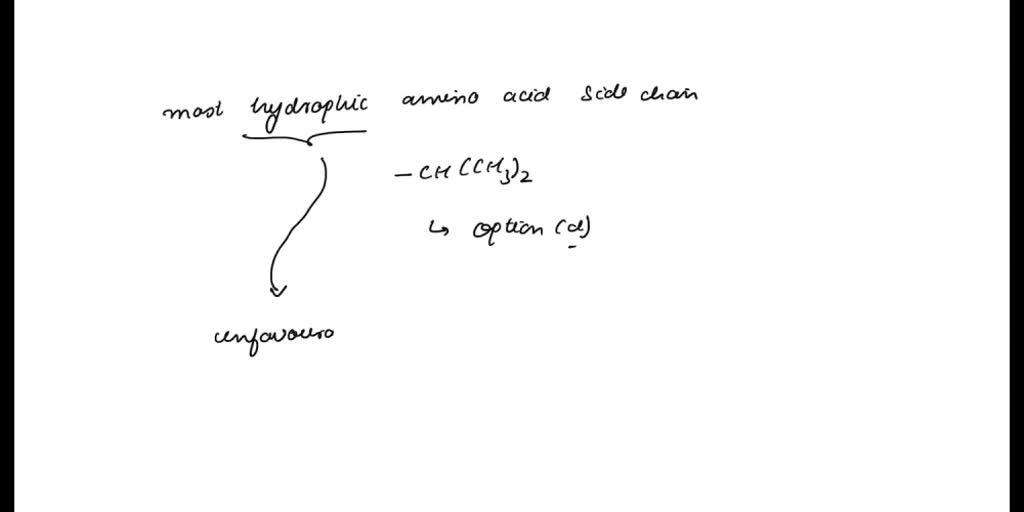 most hydrophic amino acid side chain
– CH (CH3)2
↳ option (d)
unfavouro